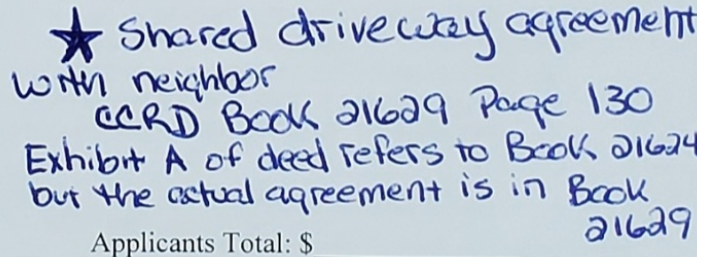 ★ Shared driveway agreement
with neighbor
CCRD Book 21629 Page 130
Exhibit A of deed refers to Book 21624
but the actual agreement is in Book
21629
Applicants Total: $